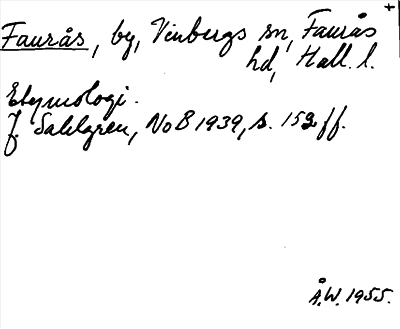 +
Faurås, by, Vinbergs sn, Faurås
hd, Hall. l.
Etymologi.
J. Sahlgren, NoB 1939, s. 152 ff.
Å.W. 1955.